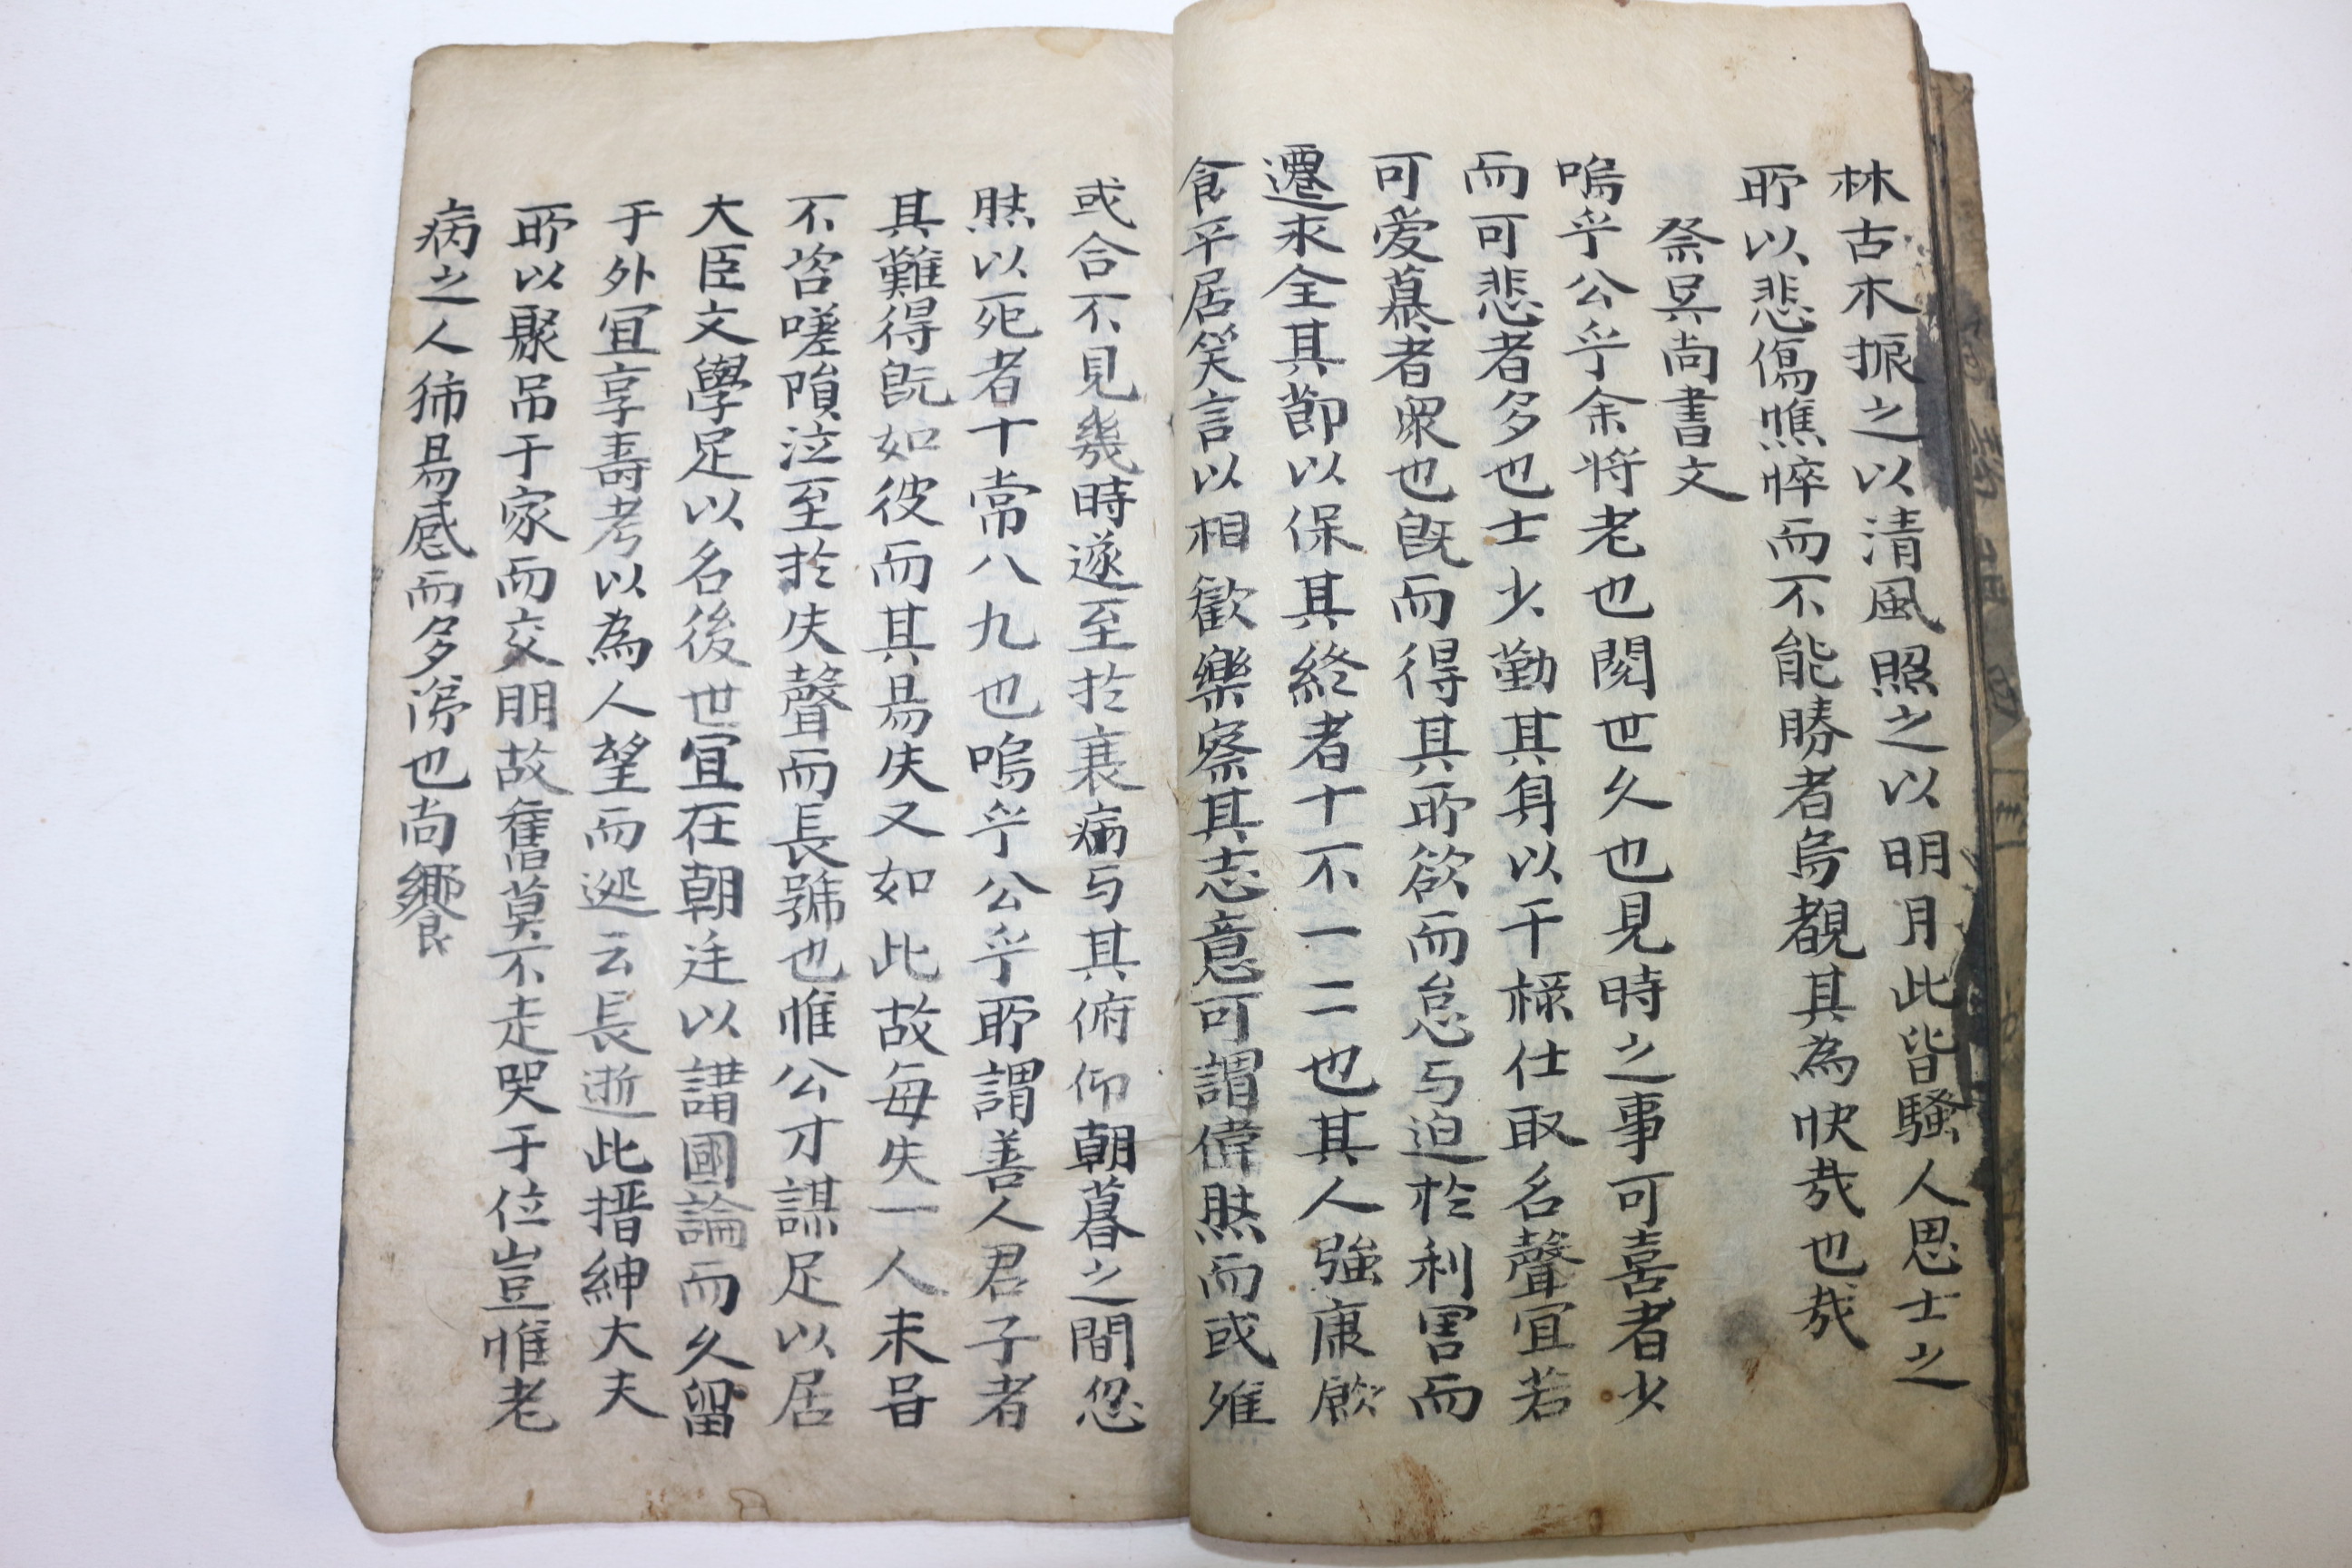 林古木振之以清風照之以明月此皆騷人思士之
所以悲傷憔悴而不能勝者烏覩其為快㦲也㦲
祭吳尚書文
嗚乎公乎余将老也閱世久也見時之事可喜者少
而可悲者多也士少勤其身以干祿仕取名聲宜若
可爱慕者衆也既而得其所欲而怠与迫於利害而
遷求全其節以保其終者十不一二也其人強康飮
食平居笑言以相歡樂察其志意可謂偉然而或離
或合不見幾時遂至於衰病与其俯仰朝暮之間忽
然以死者十常八九也嗚乎公乎所謂善人君子者
其難得既如彼而其易失又如此故每失一人未甞
不咨嗟隕泣至於失聲而長號也惟公才謀足以居
大臣文學足以名後世宜在朝廷以講國論而久留
于外宜享壽考以為人望而遽云長逝此搢紳大夫
所以聚吊于家而交朋故舊莫不走哭于位豈惟老
病之人独易感而多涕也尚饗